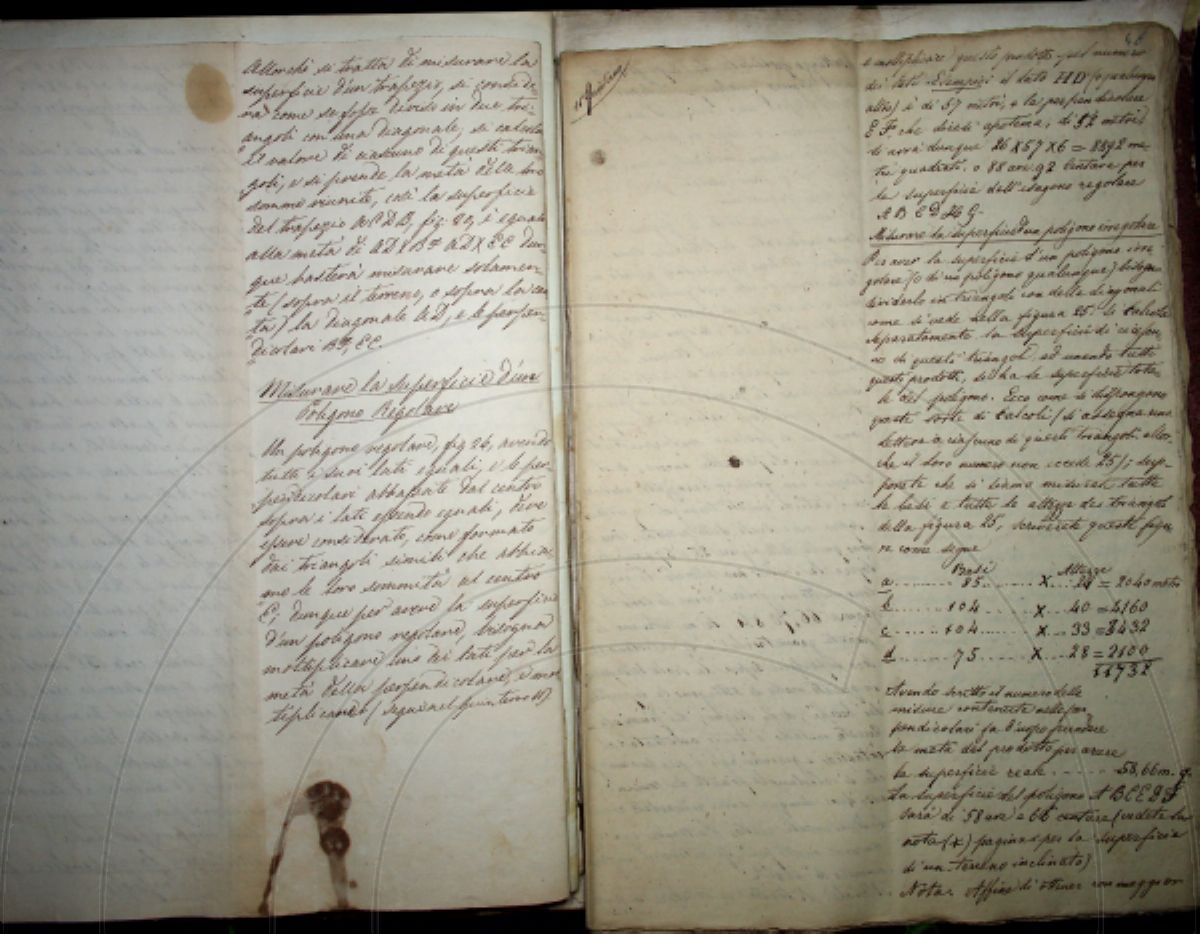 Allorchè si tratta di misurare la
superficie d'un trapezio, si conside-
ra come se fosse diviso in due tri-
angoli con una diagonale, si calcola
il valore di ciascuno di questi trian
goli, e si prende la metà della loro
somme riunite, così la superficie
del trapezio fig. è eguale
alla metà di dun-
que basterà misurare solamen-
te (sopra il terreno, o sopra la car
ta) la diagonale AD, e le perpen-
dicolari
Misurare la superficie d'un
Poligono Regolare
Un poligono regolare, fig 26, avendo
tutti i suoi lati eguali, e le per
pendicolari abbassate dal centro
sopra i lati essendo eguali, deve
essere considerato, come formato
dai triangoli simili che abbia
no le loro sommità al centro
C; dunque per avere la superficie
d'un poligono regolare, bisogna
moltiplicare uno dei lati per la
metà della perpendicolare, e mol
tiplicando (segue nel quinterno 11)
11 Quinterno
46
e moltiplicare questo prodotto pel numero
dei lati. Esempio: il lato HD (o qualunque
altro) è di 57 metri, e la perpendicolare
EF che dicesi apotema, di 52 metri,
si avrà dunque 26 X 57 X 6 = 8892 me
tri quadrati. o 88 are 92 centiare per
la superficie dell'esagono regolare
A B C D H G.
Misurare la superficie d'un poligono irregolare
Per aver la superficie d'un poligono irre
golare (o di un poligono qualunque) bisogna
dividerlo in triangoli con delle diagonali
come si vede nella figura 25. si calcola
separatamente la superficie di ciascu-
no di questi triangoli, ed unendo tutti
questi prodotti, si ha la superficie tota
le del poligono. Ecco come si dispongono
queste sorte di calcoli (si assegna una
lettera a ciascuno di questi triangoli allor
che il loro numero non eccede 25); sup-
ponete che si siano misurate tutte
le basi e tutte le altezze dei triangoli
della figura 25, scriverete queste figu
re come segue
Basi Altezze
a ........ 85 ........ X .. 24 = 2040 metri
b ........ 104 ...... X .. 40 = 4160
c ...... 104 ...... X .. 33 = 3432
d ...... 75 ...... X .. 28 = 2100
11732
Avendo scritto il numero delle
misure contenute nelle per
pendicolari fa d'uopo prendere
la metà del prodotto per avere
la superficie reale ....... 58,66 m. q.
La superficie del poligono
sarà di 58 are e 66 centiare (vedete la
nota (x) pagina per la superficie
di un terreno inclinato)
Nota. Affine di ottener con maggior